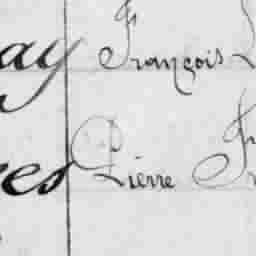 ay François
es Pierre Fr